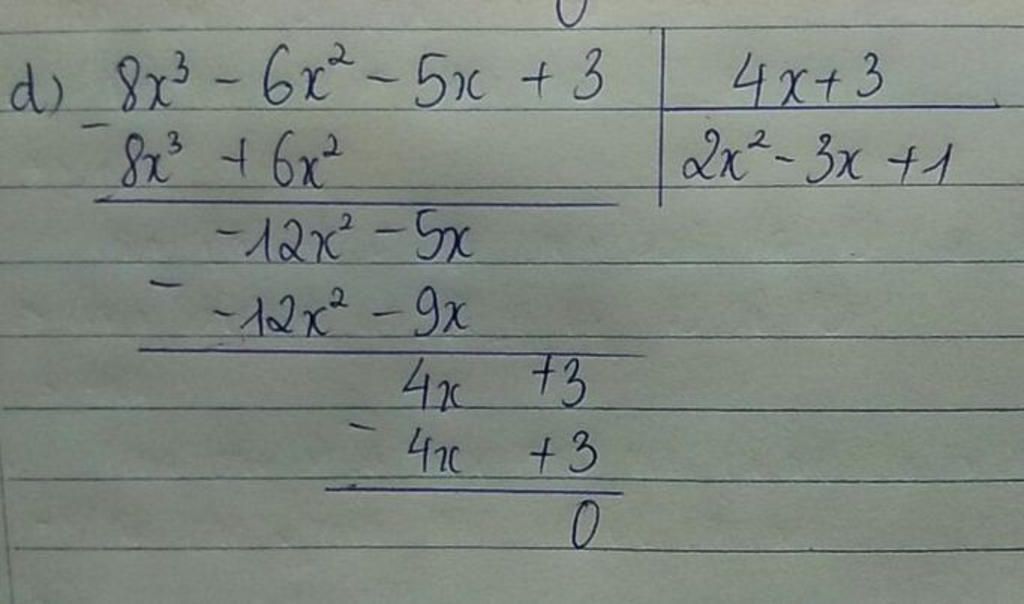 d) 8x³ - 6x² - 5x + 3 | 4x + 3
- 8x³ + 6x² | 2x² - 3x + 1
-12x² - 5x
- -12x² - 9x
4x + 3
- 4x + 3
0